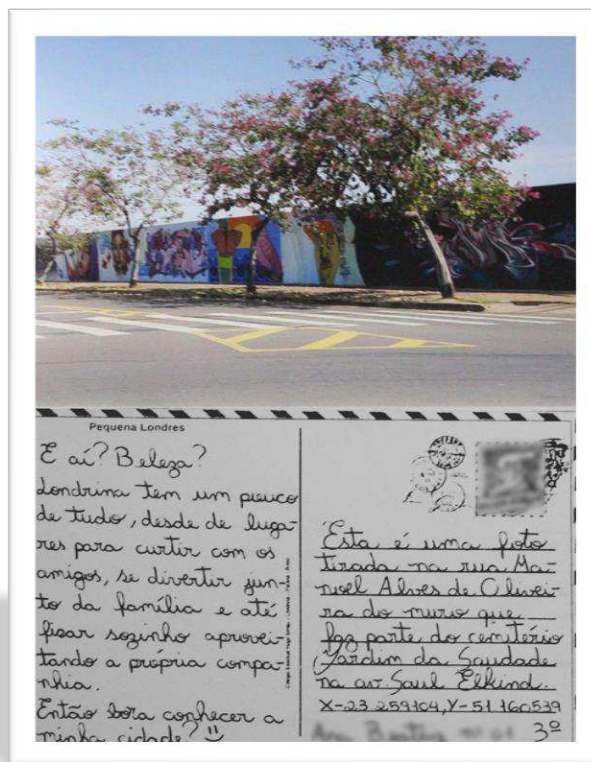 Pequena Londres
E aí? Beleza?
Londrina tem um pouco
de tudo, desde de luga-
res para curtir com os
amigos, se divertir jun-
to da família e até
ficar sozinho aprovei-
tando a própria compa-
nhia.
Então bora conhecer a
minha cidade?
Esta é uma foto
tirada na rua Ma-
noel Alves de Olivei-
ra do muro que
faz parte do cemitério
Jardim da Saudade
na av. Saul Elkind.
X-23.259104, Y-51.160539
3º